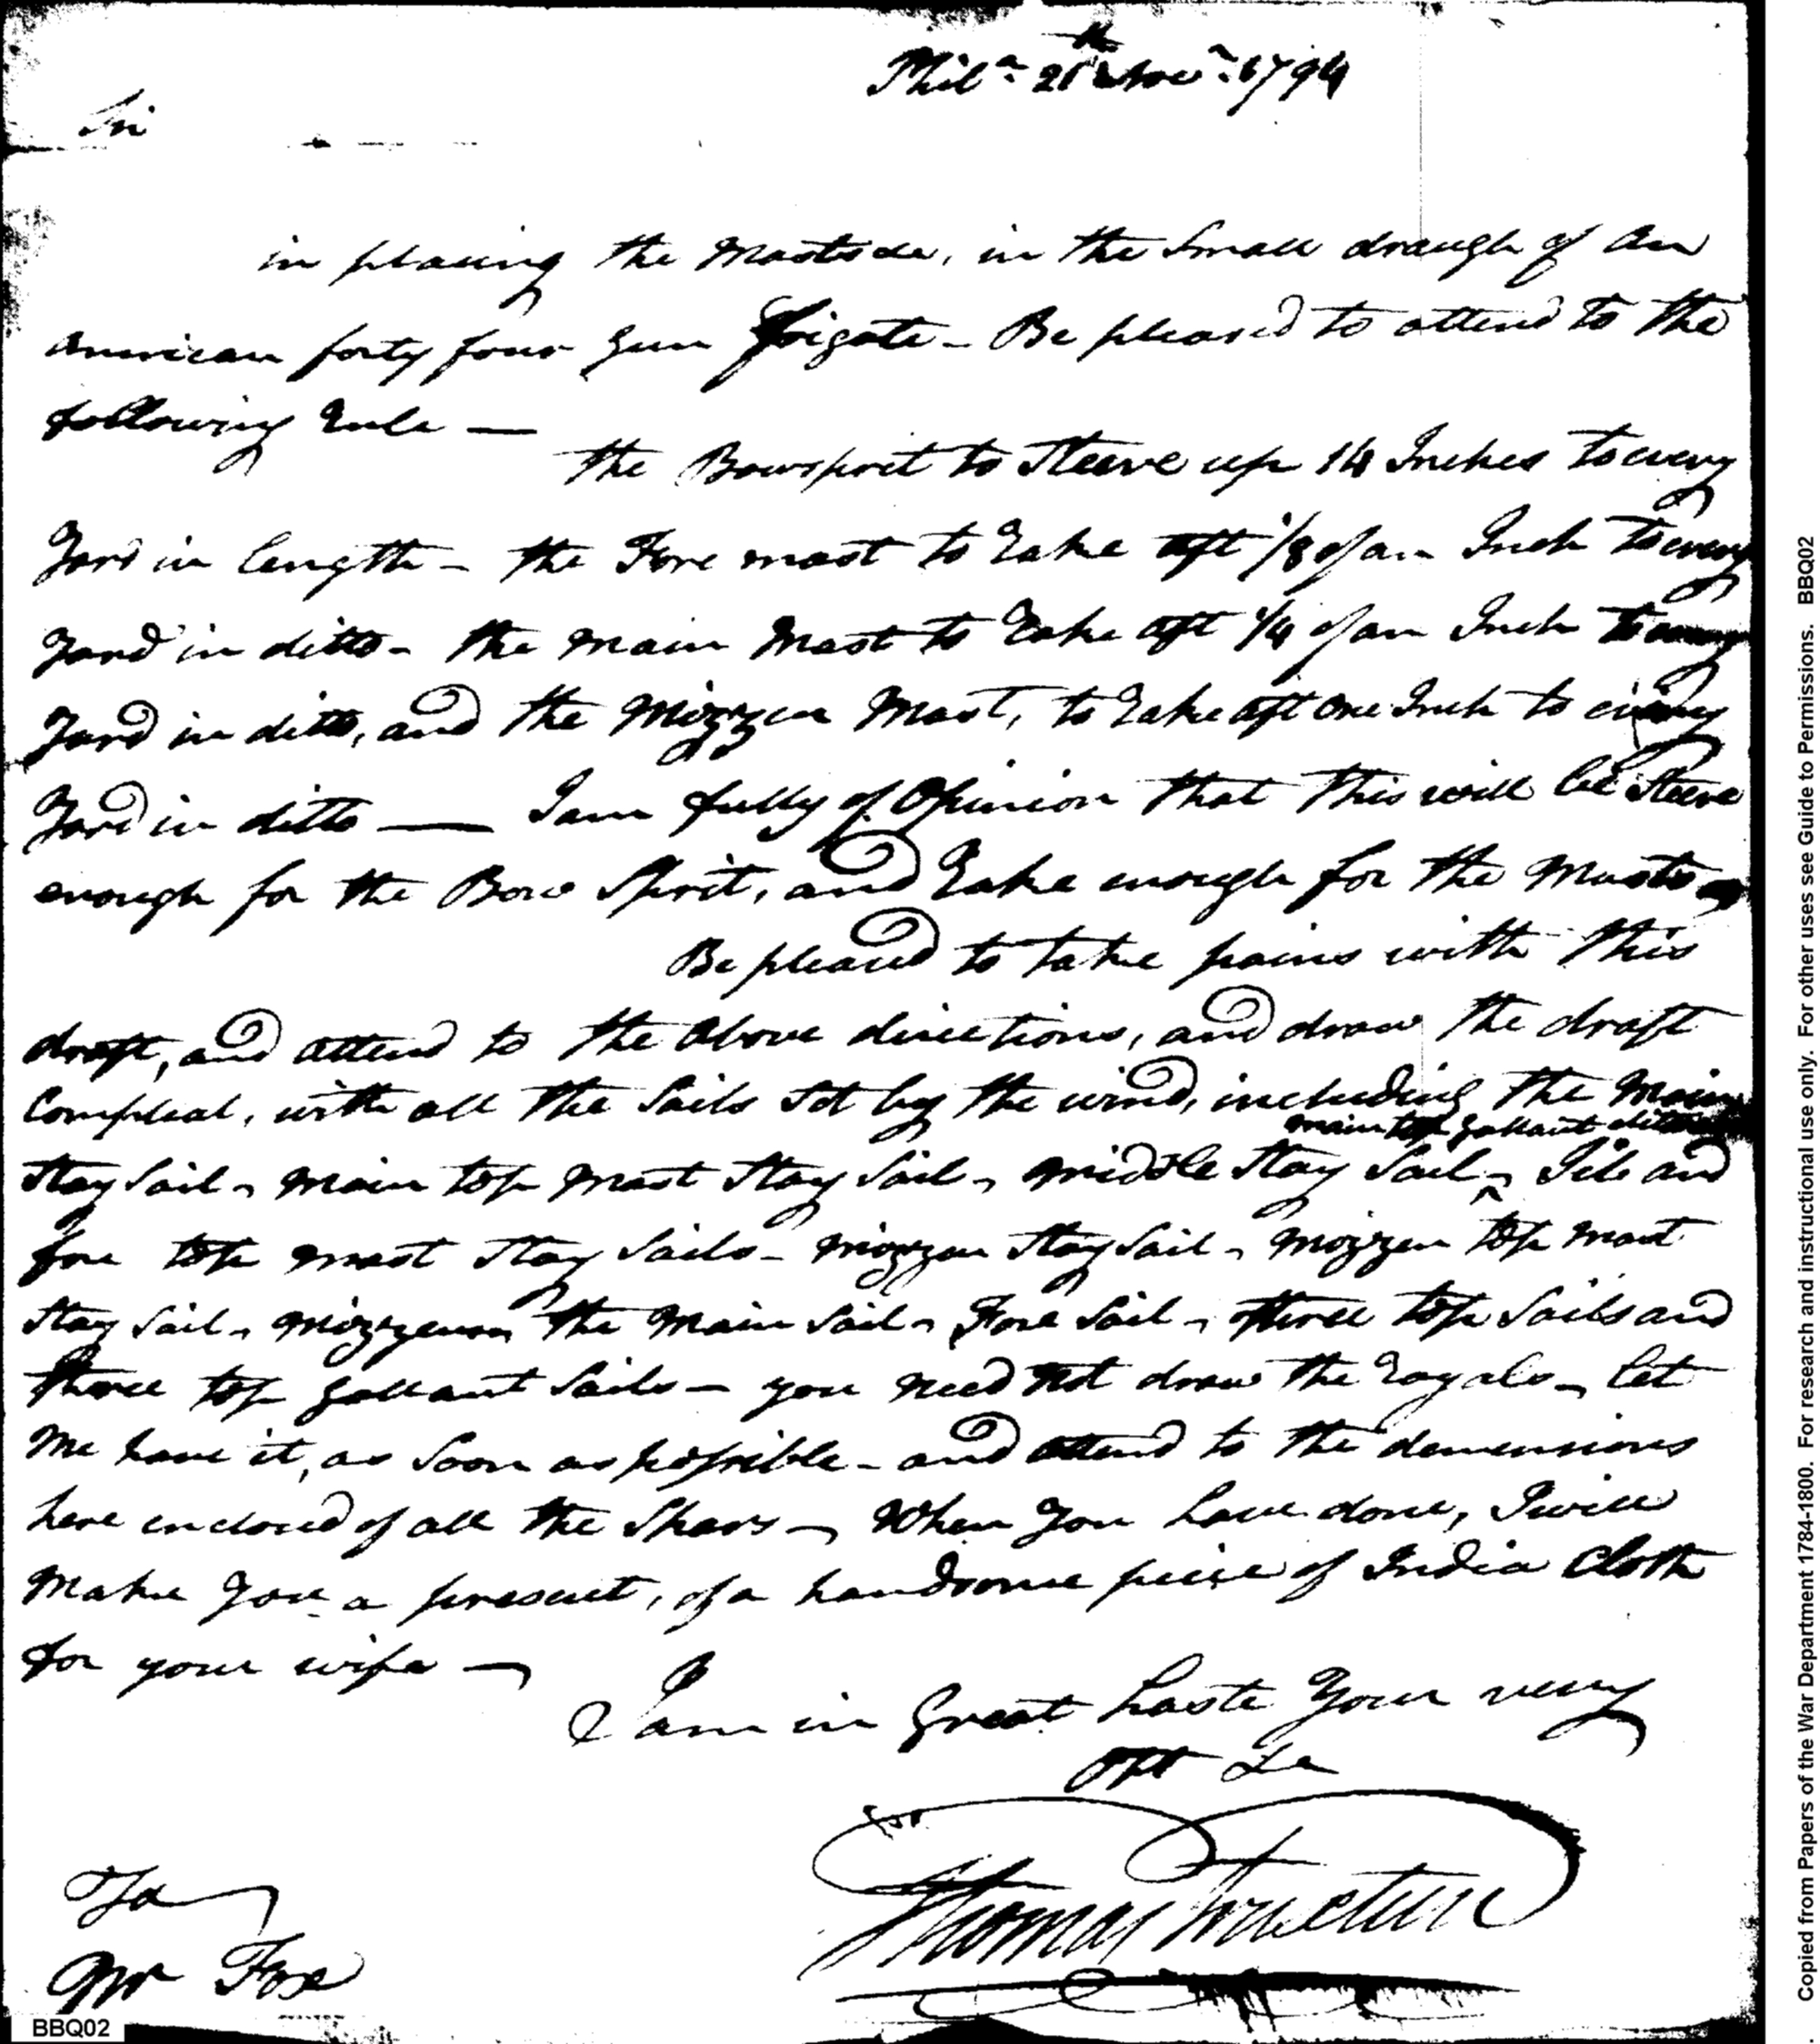 Phila. 21th Novr. 1794
Sir
in placing the Masts &ca, in the Small draugh of an
American forty four Gun frigate - Be pleased to attend to the
following rule —
the Bowsprit to Steeve up 14 Inches to every
Yard in length - the Fore mast to rake aft 1/8 of an Inch to every
Yard in ditto - the main Mast to rake aft 1/4 of an Inch to every
Yard in ditto, and the Mizzen Mast, to rake aft one Inch to every
Yard in ditto — I am fully of Opinion that this will be Steeve
enough for the Bow Sprit, and rake enough for the Masts
Be pleased to take pains with this
draft, and attend to the above directions, and draw the draft
Compleat, with all the Sails set by the wind, including the Main
main top gallant ditto
Stay Sail - Main top Mast Stay Sail - middle Stay Sail - ^ Jib and
fore top mast Stay Sails - Mizzen Stay Sail - Mizzen top mast
Stay Sail - Mizzen the Main Sail - Fore Sail - three top Sails and
three top gallant Sails - you need not draw the royals - let
Me have it, as Soon as possible - and attend to the demensions
here enclosed of all the Spars - When you have done, I will
Make you a present, of a handsome peice of India Cloth
for your wife —
I am in great haste Your very
Obt Se
Thomas Truxtun
To
Mr Fox
BBQ02
Copied from Papers of the War Department 1784-1800. For research and instructional use only. For other uses see Guide to Permissions. BBQ02